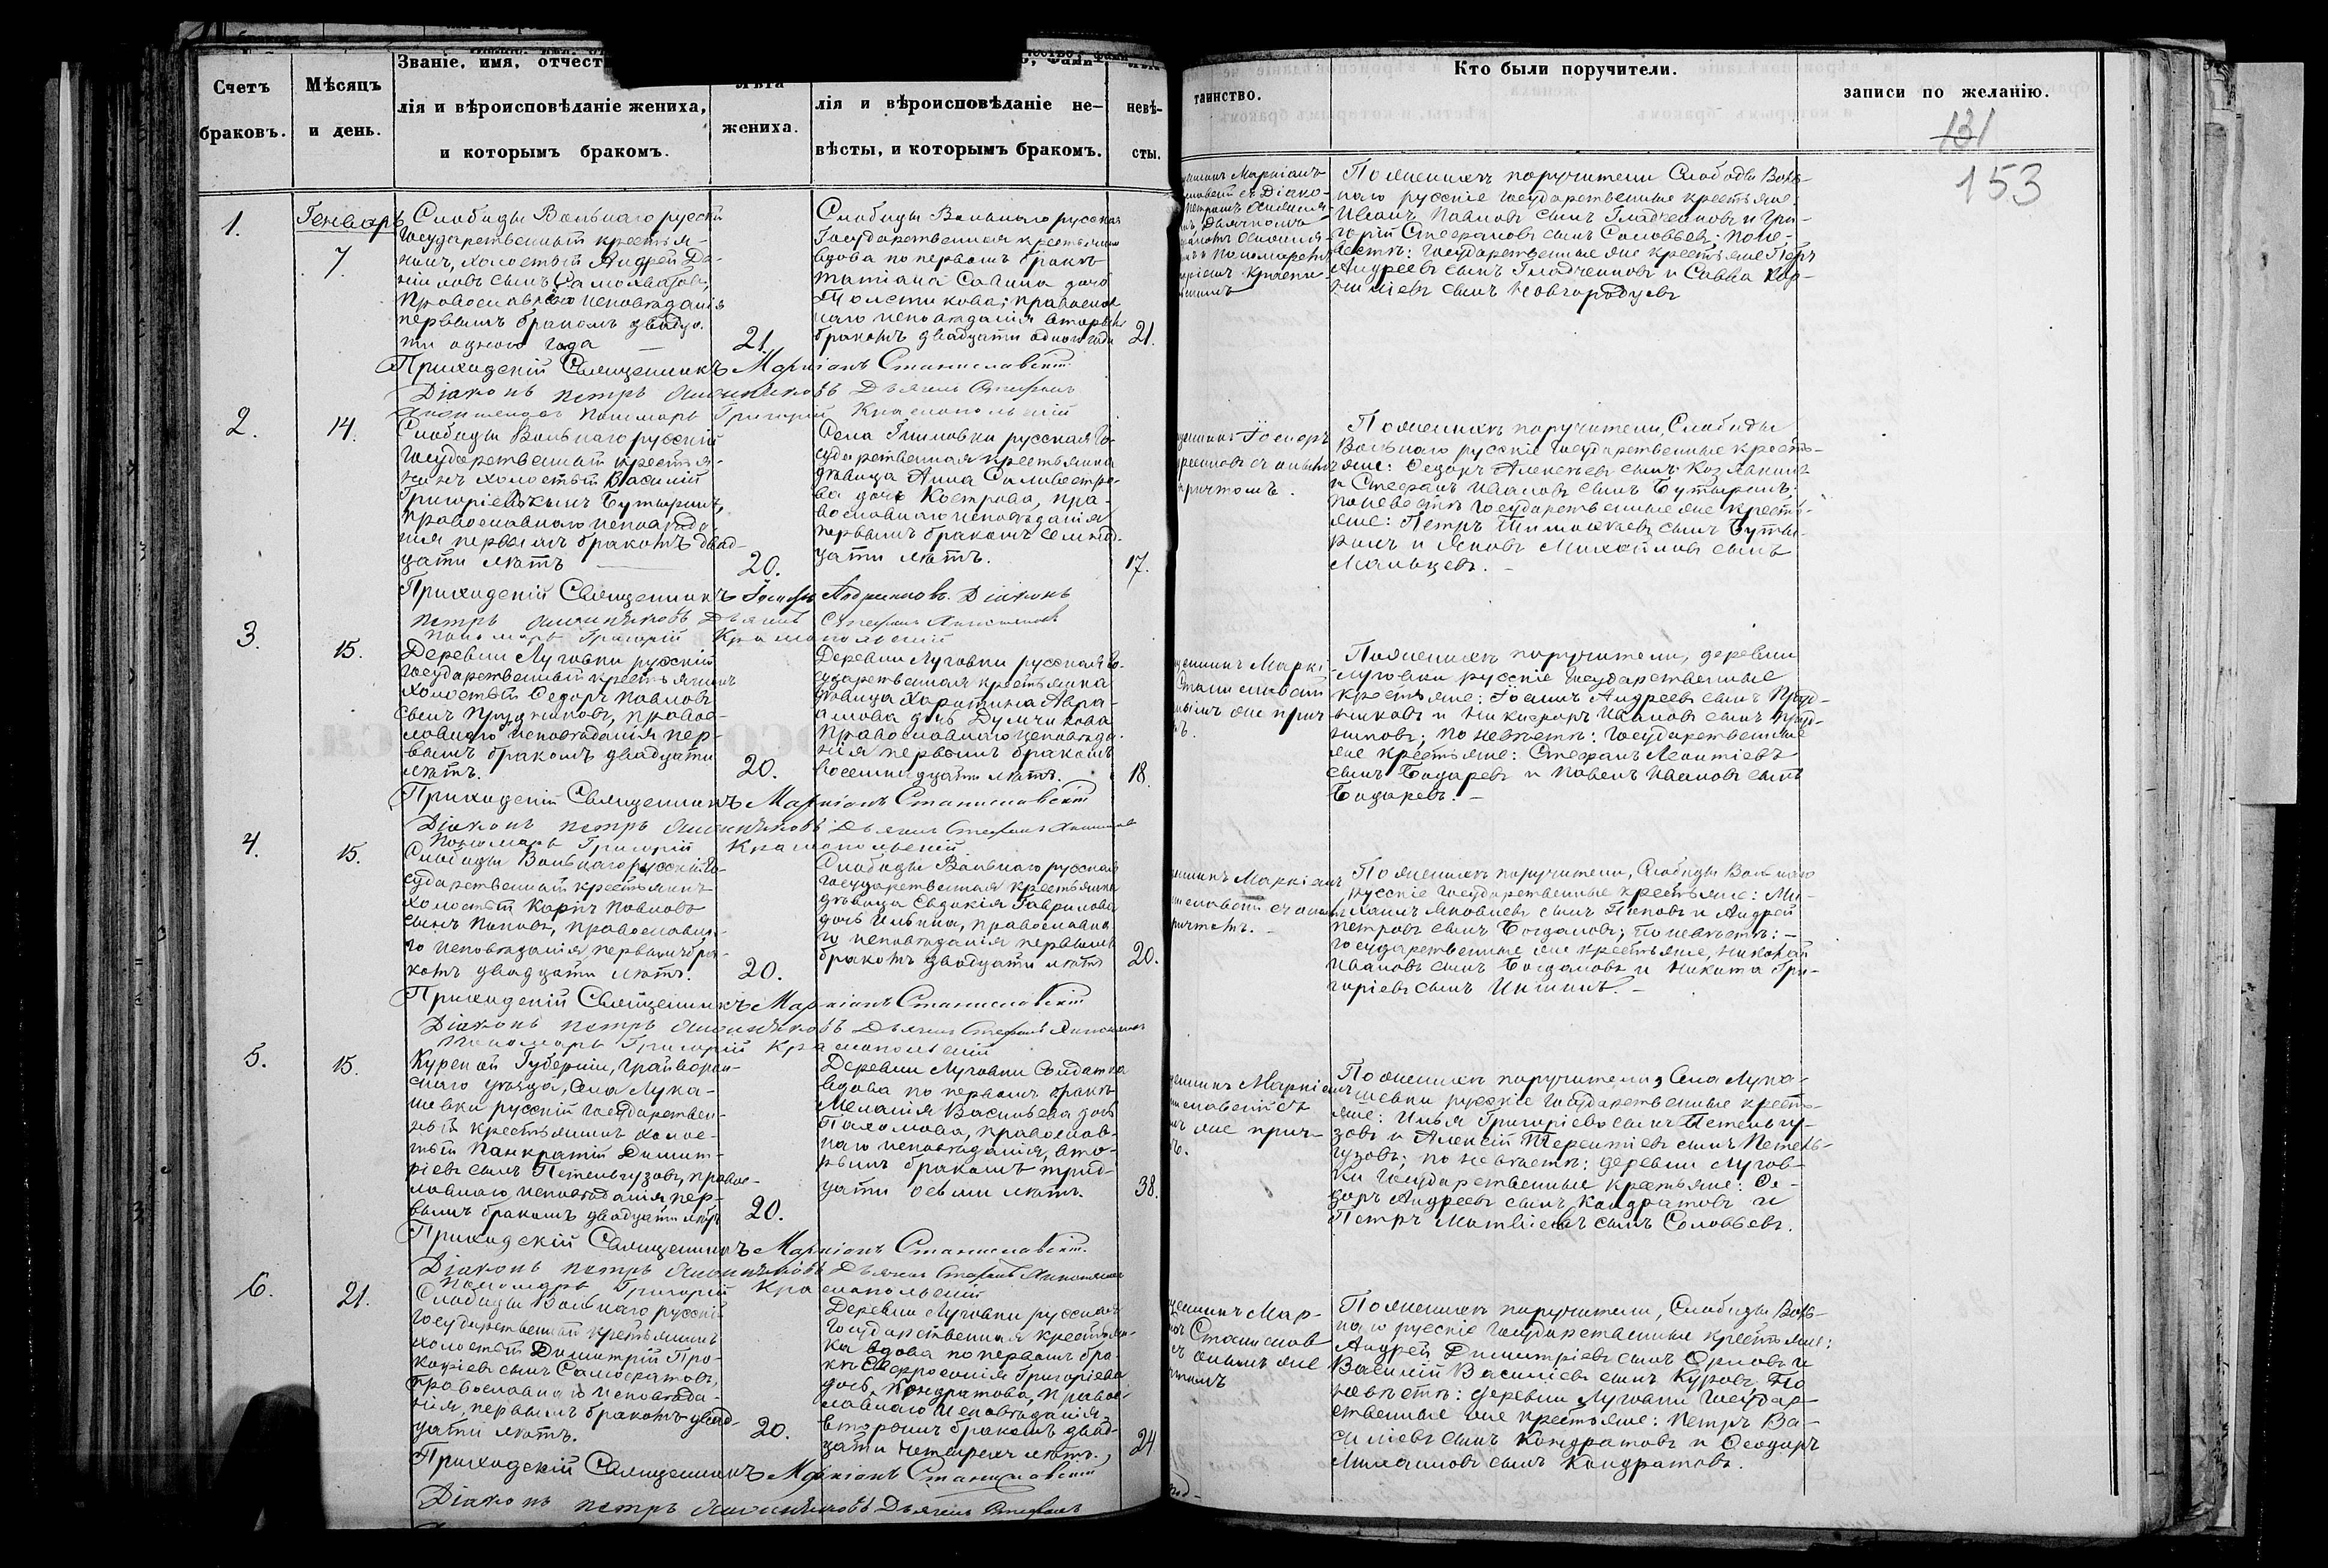 Счетъ
браковъ.
Мѣсяцъ
и день.
Званіе, имя, отчест
лія и вѣроисповѣданіе жениха,
и которымъ бракомъ.
жениха.
лія и вѣроисповѣданіе не-
вѣсты, и которымъ бракомъ.
невѣ-
сты.
таинство.
Кто были поручители.
записи по желанію.
131
153
1.
Генварь
7.
Слободы Вольнаго русскій
Государственный крестья-
нинъ, холостый Андрей Да-
ниловъ сынъ
Православнаго исповѣданія
первымъ бракомъ двадца-
ти одного года
21.
Слободы Вольнаго русская
Государственная крестьянка
вдова по первомъ бракѣ
Татіана Савина дочь
Толстикова; православ
наго исповѣданія вторымъ
бракомъ двадцати одного года
21.
Приходскій Священникъ Маркіанъ Станиславскій
Діаконъ Петръ Дьячекъ Стефанъ
Пономарь Григорій Краснопольскій
По женихѣ поручители Слободы Воль-
наго русскіе Государственные крестьяне
Иванъ Павловъ сынъ Гладченковъ и Гри-
горій Стефановъ сынъ Соловьевъ; по не-
вѣстѣ: Государственные же крестьяне Петръ
Андреевъ сынъ Гладченковъ и Савва Кор-
ниліевъ сынъ Новгородцевъ
2.
14.
Слободы Вольнаго русскій
Государственный крестья-
нинъ холостый Василій
Григоріевъ сынъ Бутыринъ,
православнаго исповѣда-
нія первымъ бракомъ двад-
цати лѣтъ
20.
Села русская Го-
сударственная крестьянка
дѣвица Анна Силивестро-
ва дочь Кострова, пра-
вославнаго исповѣданія
первымъ бракомъ семнад-
цати лѣтъ.
17.
Приходскій Священникъ Іосифъ Андреенковъ. Діаконъ
Петръ Дьячекъ Стефанъ
Пономарь Григорій Краснопольскій
По женихѣ поручители, Слободы
Вольнаго русскіе Государственные кресть-
яне: Федоръ Алексѣевъ сынъ
и Стефанъ Ивановъ сынъ Бутыринъ.
По невѣстѣ Государственные же кресть-
яне: Петръ Тимофѣевъ сынъ Буты-
ринъ и Яковъ Михайловъ сынъ
Мальцевъ.
3.
15.
Деревни Луговки русскій
Государственный крестьянинъ
холостый Федоръ Павловъ
сынъ Прудниковъ, правос-
лавнаго исповѣданія пер-
вымъ бракомъ двадцати
лѣтъ.
20.
Деревни Луговки русская Го-
сударственная крестьянка
дѣвица Харитина Авра-
амова дочь Думчикова
Православнаго исповѣда-
нія первымъ бракомъ
восемнадцати лѣтъ.
18.
Приходскій Священникъ Маркіанъ Станиславскій
Діаконъ Петръ Дьячекъ Стефанъ
Пономарь Григорій Краснопольскій
По женихѣ поручители, деревни
Луговки русскіе Государственные
крестьяне: Іоаннъ Андреевъ сынъ Пруд-
никовъ и Никифоръ Ивановъ сынъ Пруд-
никовъ; по невѣстѣ: Государственные
же крестьяне: Стефанъ Леонтіевъ
сынъ Бочаревъ и Павелъ Ивановъ сынъ
Бочаревъ.
4.
15.
Слободы Вольнаго русскій Го-
сударственный крестьянинъ
холостый Карпъ Павловъ
сынъ Поповъ, православна-
го исповѣданія первымъ бра-
комъ двадцати лѣтъ.
20.
Слободы Вольнаго русская
Государственная крестьянка
дѣвица Евдокія Гаврилова
дочь Ильина, православна
го исповѣданія первымъ
бракомъ двадцати лѣтъ
20.
Приходскій Священникъ Маркіанъ Станиславскій
Діаконъ Петръ Дьячекъ Стефанъ
Пономарь Григорій Краснопольскій
По женихѣ поручители, Слободы Вольнаго
русскіе Государственные крестьяне: Ми-
хаилъ Яковлевъ сынъ Поповъ и Андрей
Петровъ сынъ Богдановъ; по невѣстѣ:
Государственные же крестьяне, Николай
Ивановъ сынъ Богдановъ и Никита Гри-
горіевъ сынъ
5.
15.
Курской Губерніи, Грайворон-
скаго уѣзда, Села Лука-
шевки русскій Государствен-
ный крестьянинъ холос-
тый Панкратій Димит-
ріевъ сынъ Петельгузовъ, правос-
лавнаго исповѣданія пер-
вымъ бракомъ двадцати лѣтъ
20.
Деревни Луговки Солдатка
вдова по первомъ бракѣ
Меланія Васильева дочь
Пахомова, православ-
наго исповѣданія, вто-
рымъ бракомъ трид-
цати осьми лѣтъ.
38.
Приходскій Священникъ Маркіанъ Станиславскій.
Діаконъ Петръ Дьячекъ Стефанъ
Пономарь Григорій Краснопольскій
По женихѣ поручители, Села Лука-
шевки русскіе Государственные кресть-
яне: Илья Григоріевъ сынъ Петельгу-
зовъ и Алексій Терентіевъ сынъ Петель-
гузовъ; по невѣстѣ: деревни Лугов-
ки Государственные крестьяне: Фе-
доръ Андреевъ сынъ Кондратовъ и
Петръ Матвіевъ сынъ Соловьевъ.
6.
21.
Слободы Вольнаго русскій
Государственный крестьянинъ
холостый Димитрій Про-
кофіевъ сынъ
Православнаго исповѣда-
нія, первымъ бракомъ двад-
цати лѣтъ.
20.
Деревни Луговки русская
Государственная крестьян-
ка вдова по первомъ бра-
кѣ Евфросинія Григоріева
дочь Кондратова, правос-
лавнаго исповѣданія
вторымъ бракомъ двад-
цати четырехъ лѣтъ.
24
Приходскій Священникъ Маркіанъ Станиславскій
Діаконъ Петръ Дьячекъ Стефанъ
По женихѣ поручители, Слободы Воль-
наго русскіе Государственные крестьяне:
Андрей Димитріевъ сынъ Орловъ и
Василій Василіевъ сынъ Куровъ. По
невѣстѣ: деревни Луговки Государ-
ственные же крестьяне: Петръ Ва-
силіевъ сынъ Кондратовъ и Феодоръ
Михаиловъ сынъ Кондратовъ.